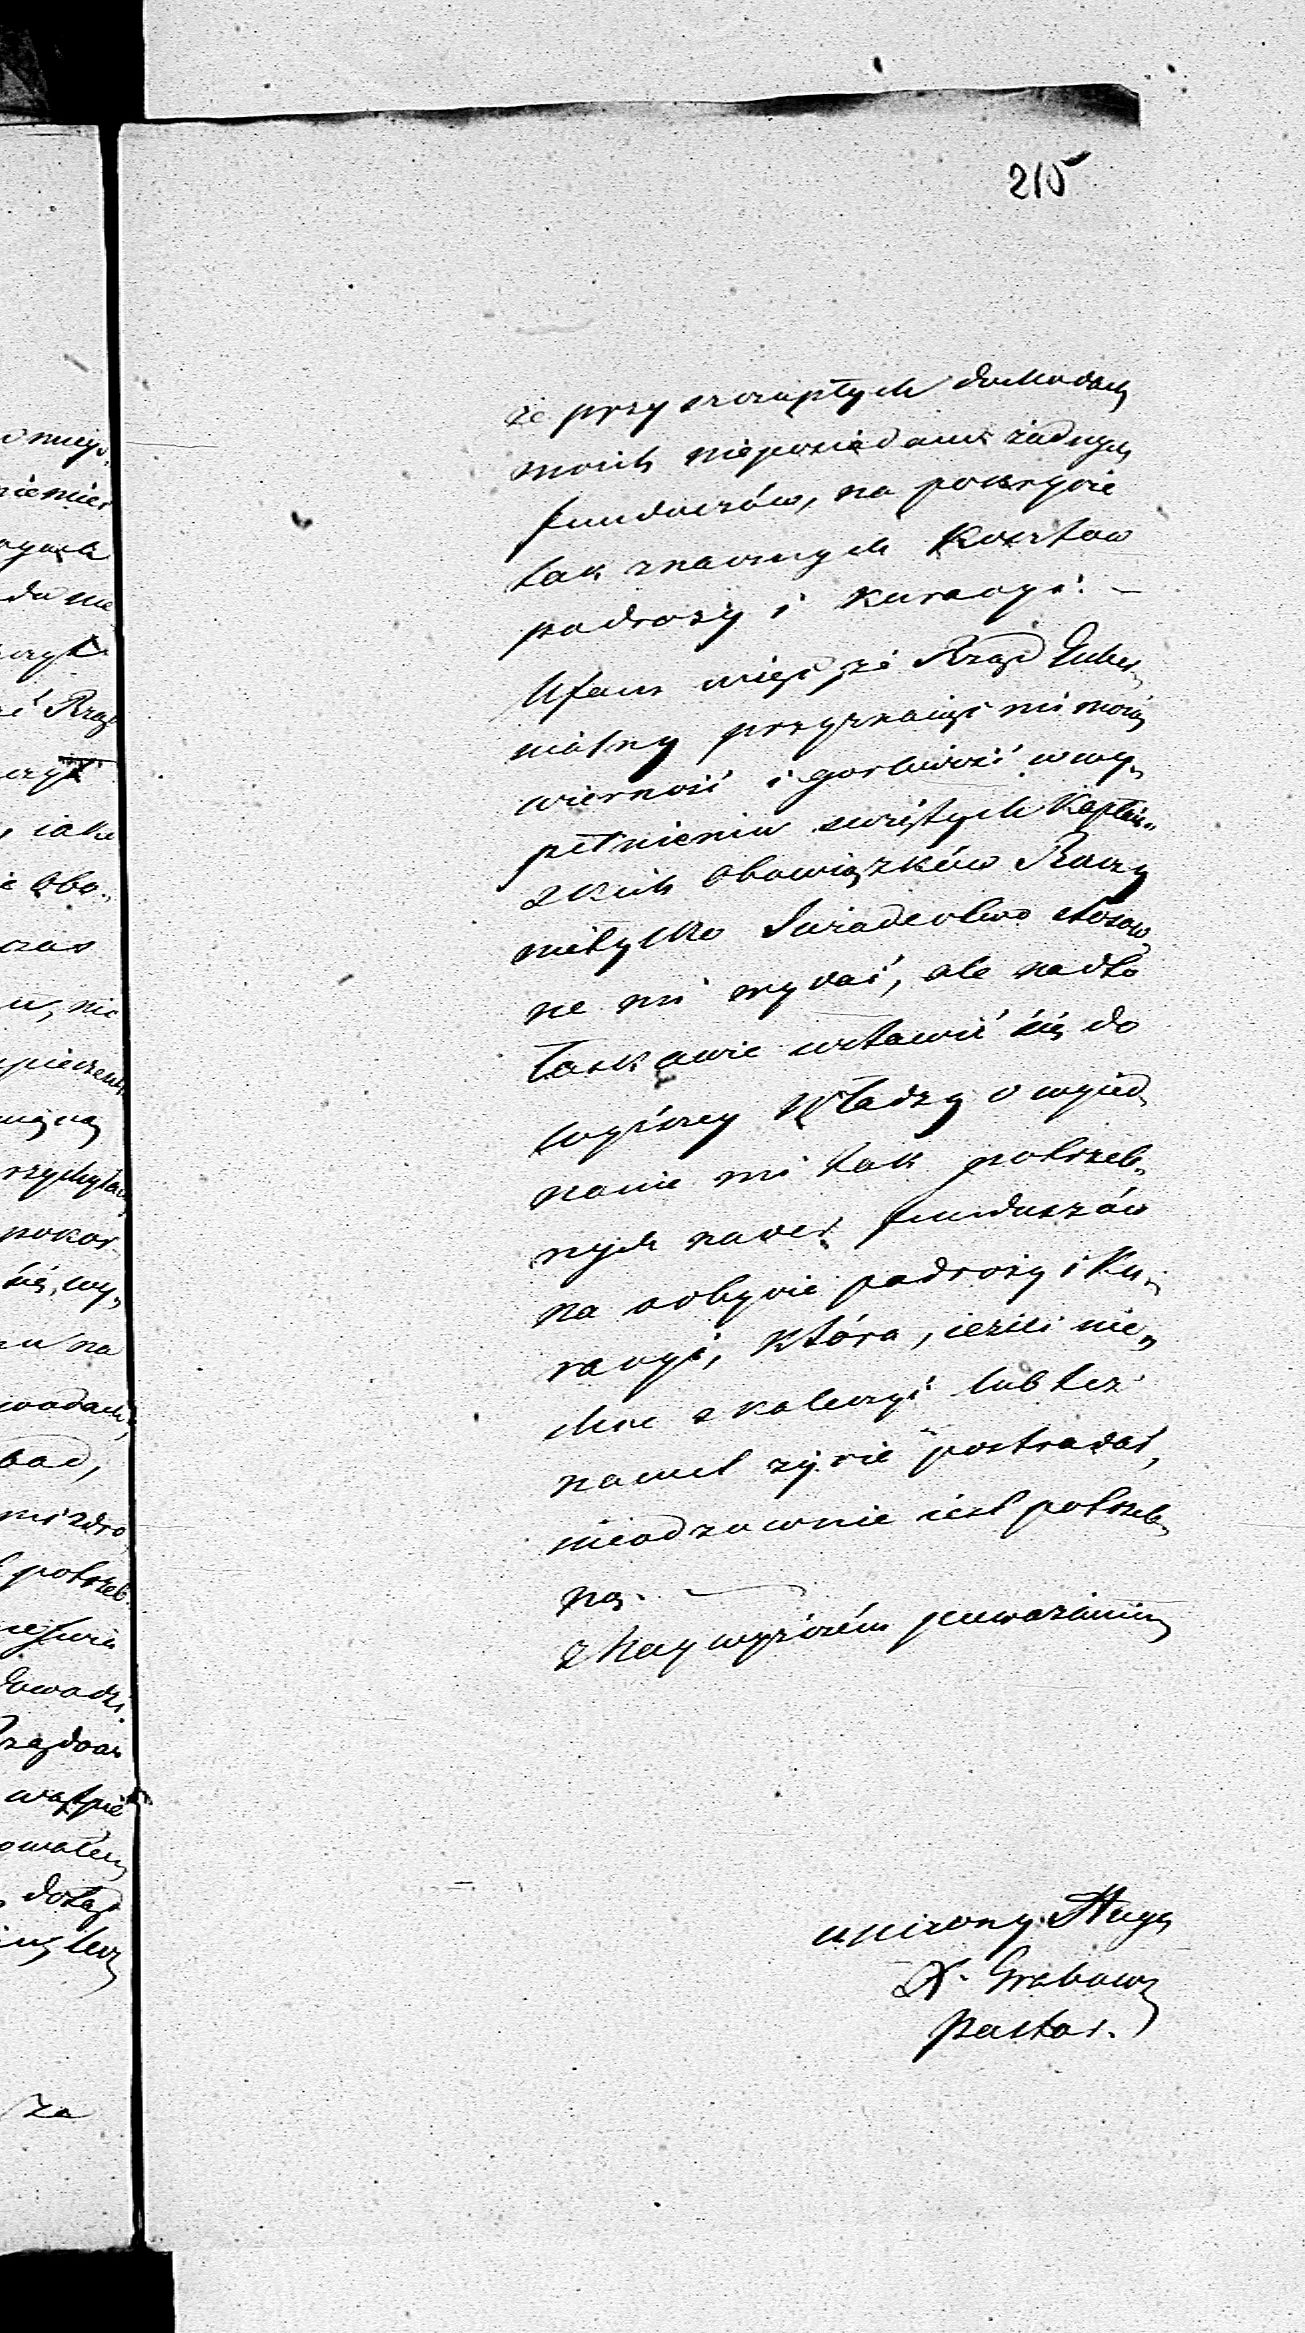 215
że przy szczupłych dochodach
moich nieposiadam żadnych
funduszów, na pokrycie
tak znacznych kosztow
podroży i kuracyi. –
Ufam więc, że Rząd Guber„
nialny przyznaiąc mi moią
wierność i gorliwość w wy„
pełnieniu świętych Kapłań„
skich obowiązków Raczy
nietylko Swiadectwo stosow„
ne mi wydać, ale nadto
łaskawie wstawić się do
wyższey Władzy o wyied„
nanie mi tak potrzeb„
nych funduszów
na odbycie podroży i Ku„
racyi, która, ieżeli nie„
chcę z kaleczyć lub też
nawet życie postradać,
nieodzownie iest potrzeb„
ną. —
Z Naywyższém poważaniem
uniżony Sługa
X. Grabow
Pastor.
mieys„
niemiec
du
Rząd
iako
obo„
czas
nic
pokor
się, wy„
na
mi zdro
potrzeb„
dotąd
lecz
za